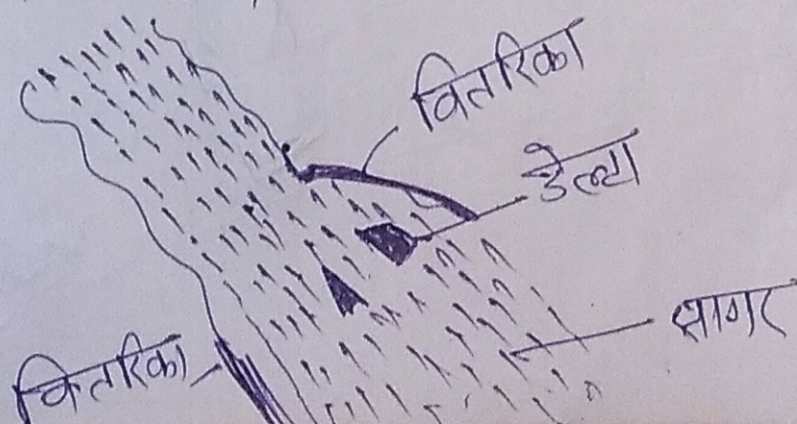 वितरिका
डेल्टा
सागर
वितरिका